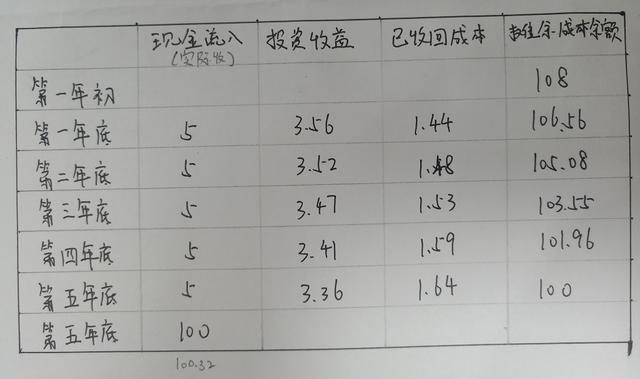 现金流入 投资收益 已收回成本 摊余成本余额
(实际收)
第一年初 108
第一年底 5 3.56 1.44 106.56
第二年底 5 3.52 1.48 105.08
第三年底 5 3.47 1.53 103.55
第四年底 5 3.41 1.59 101.96
第五年底 5 3.36 1.64 100
第五年底 100
100.32